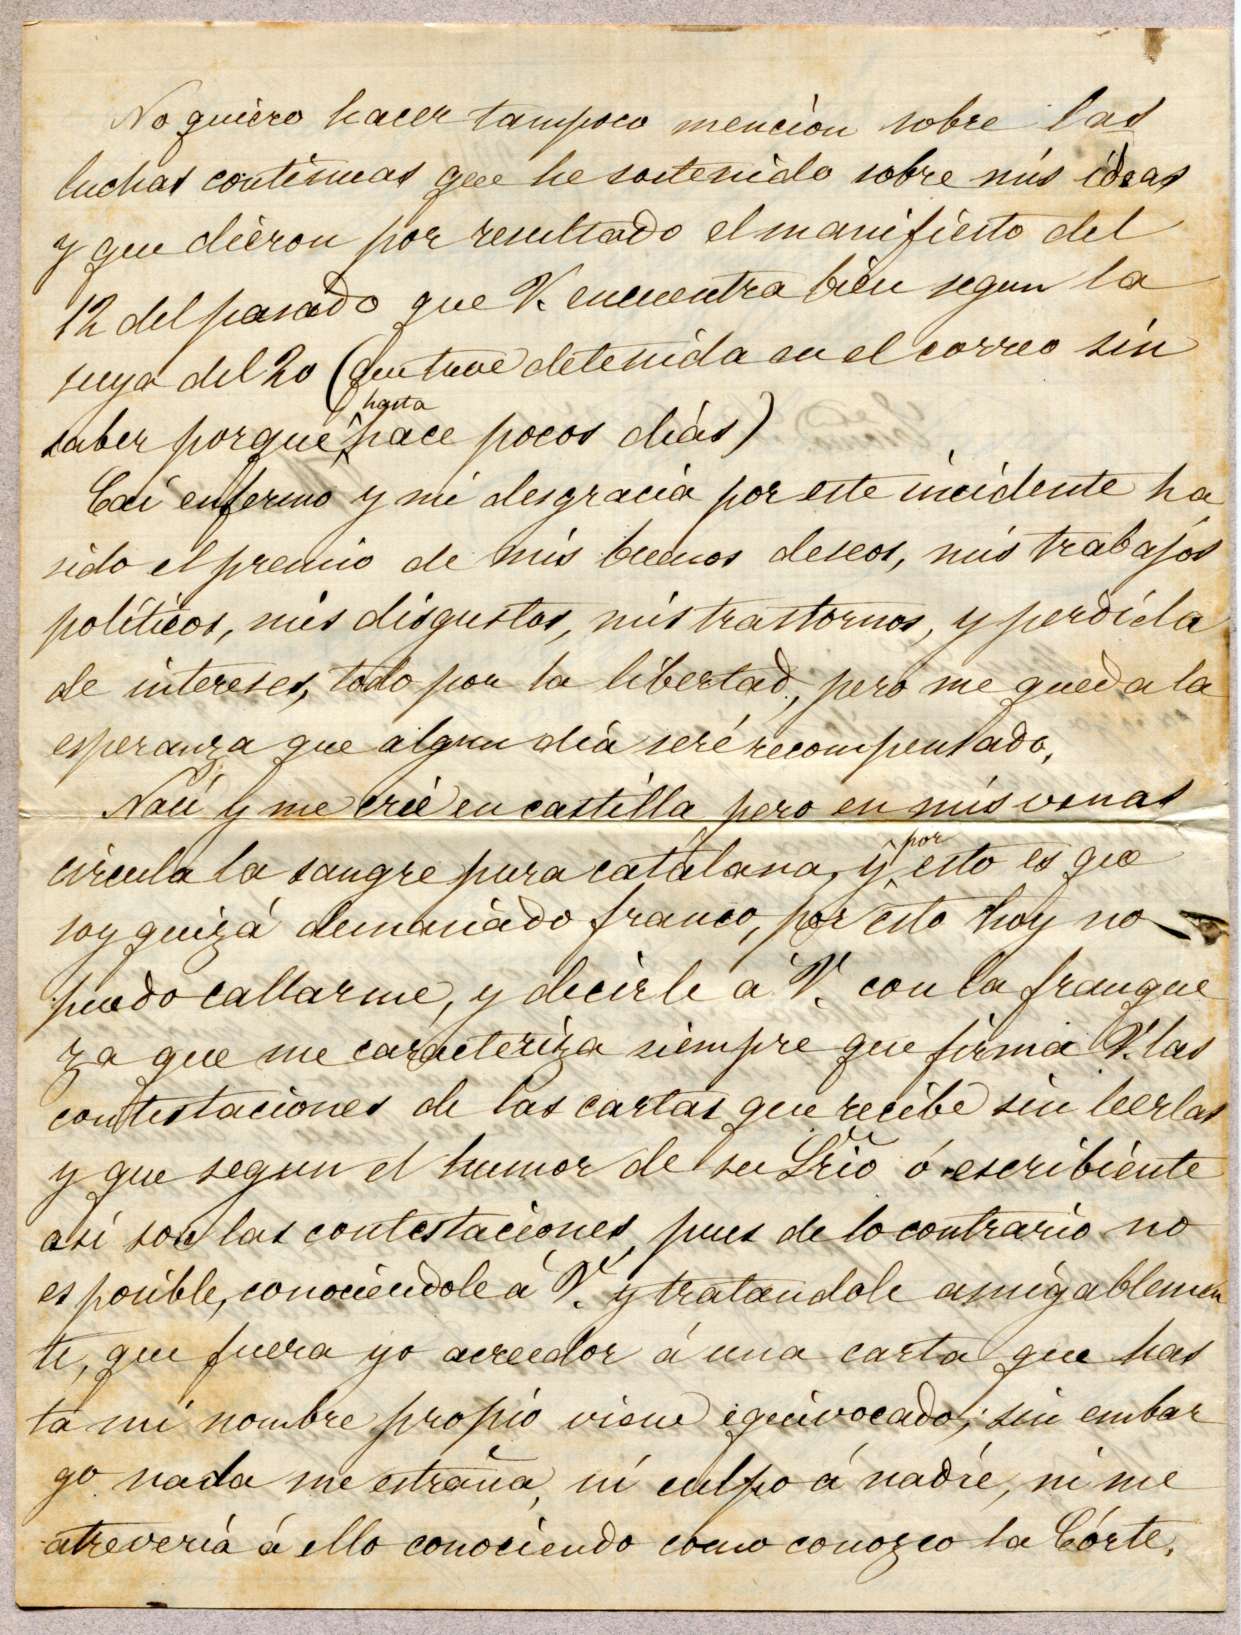 No quiero hacer tampoco mención sobre las
luchas contínuas que he sostenido sobre mis ideas
y que dieron por resultado el manifiesto del
12 del pasado que V. encuentra bien segun la
suya del 20 (que tuve detenida en el correo sin
saber porque hasta hace pocos días)
Caí enfermo y mi desgracia por este incidente ha
sido el premio de mis buenos deseos, mis trabajos
políticos, mis disgustos, mis trastornos, y perdida
de intereses, todo por la libertad, pero me queda la
esperanza que algun día seré recompensado.
Nací y me crié en castilla pero en mis venas
circula la sangre pura catalana, y por esto es que
soy quizá demasiado franco, por esto hoy no
puedo callarme, y decirle á V. con la franque
za que me caracteriza siempre que firma V. las
contestaciones de las cartas que recibe sin leerlas
y que segun el humor de su Srio ó escribiente
así son las contestaciones, pues de lo contrario no
es posible, conociéndole á V. y tratandole amigablemen
te, que fuera yo acreedor á una carta que has
ta mi nombre propio viene equivocado; sin embar
go nada me estraña, ni culpo á nadie, ni me
atrevería á ello conociendo como conozco la Córte.